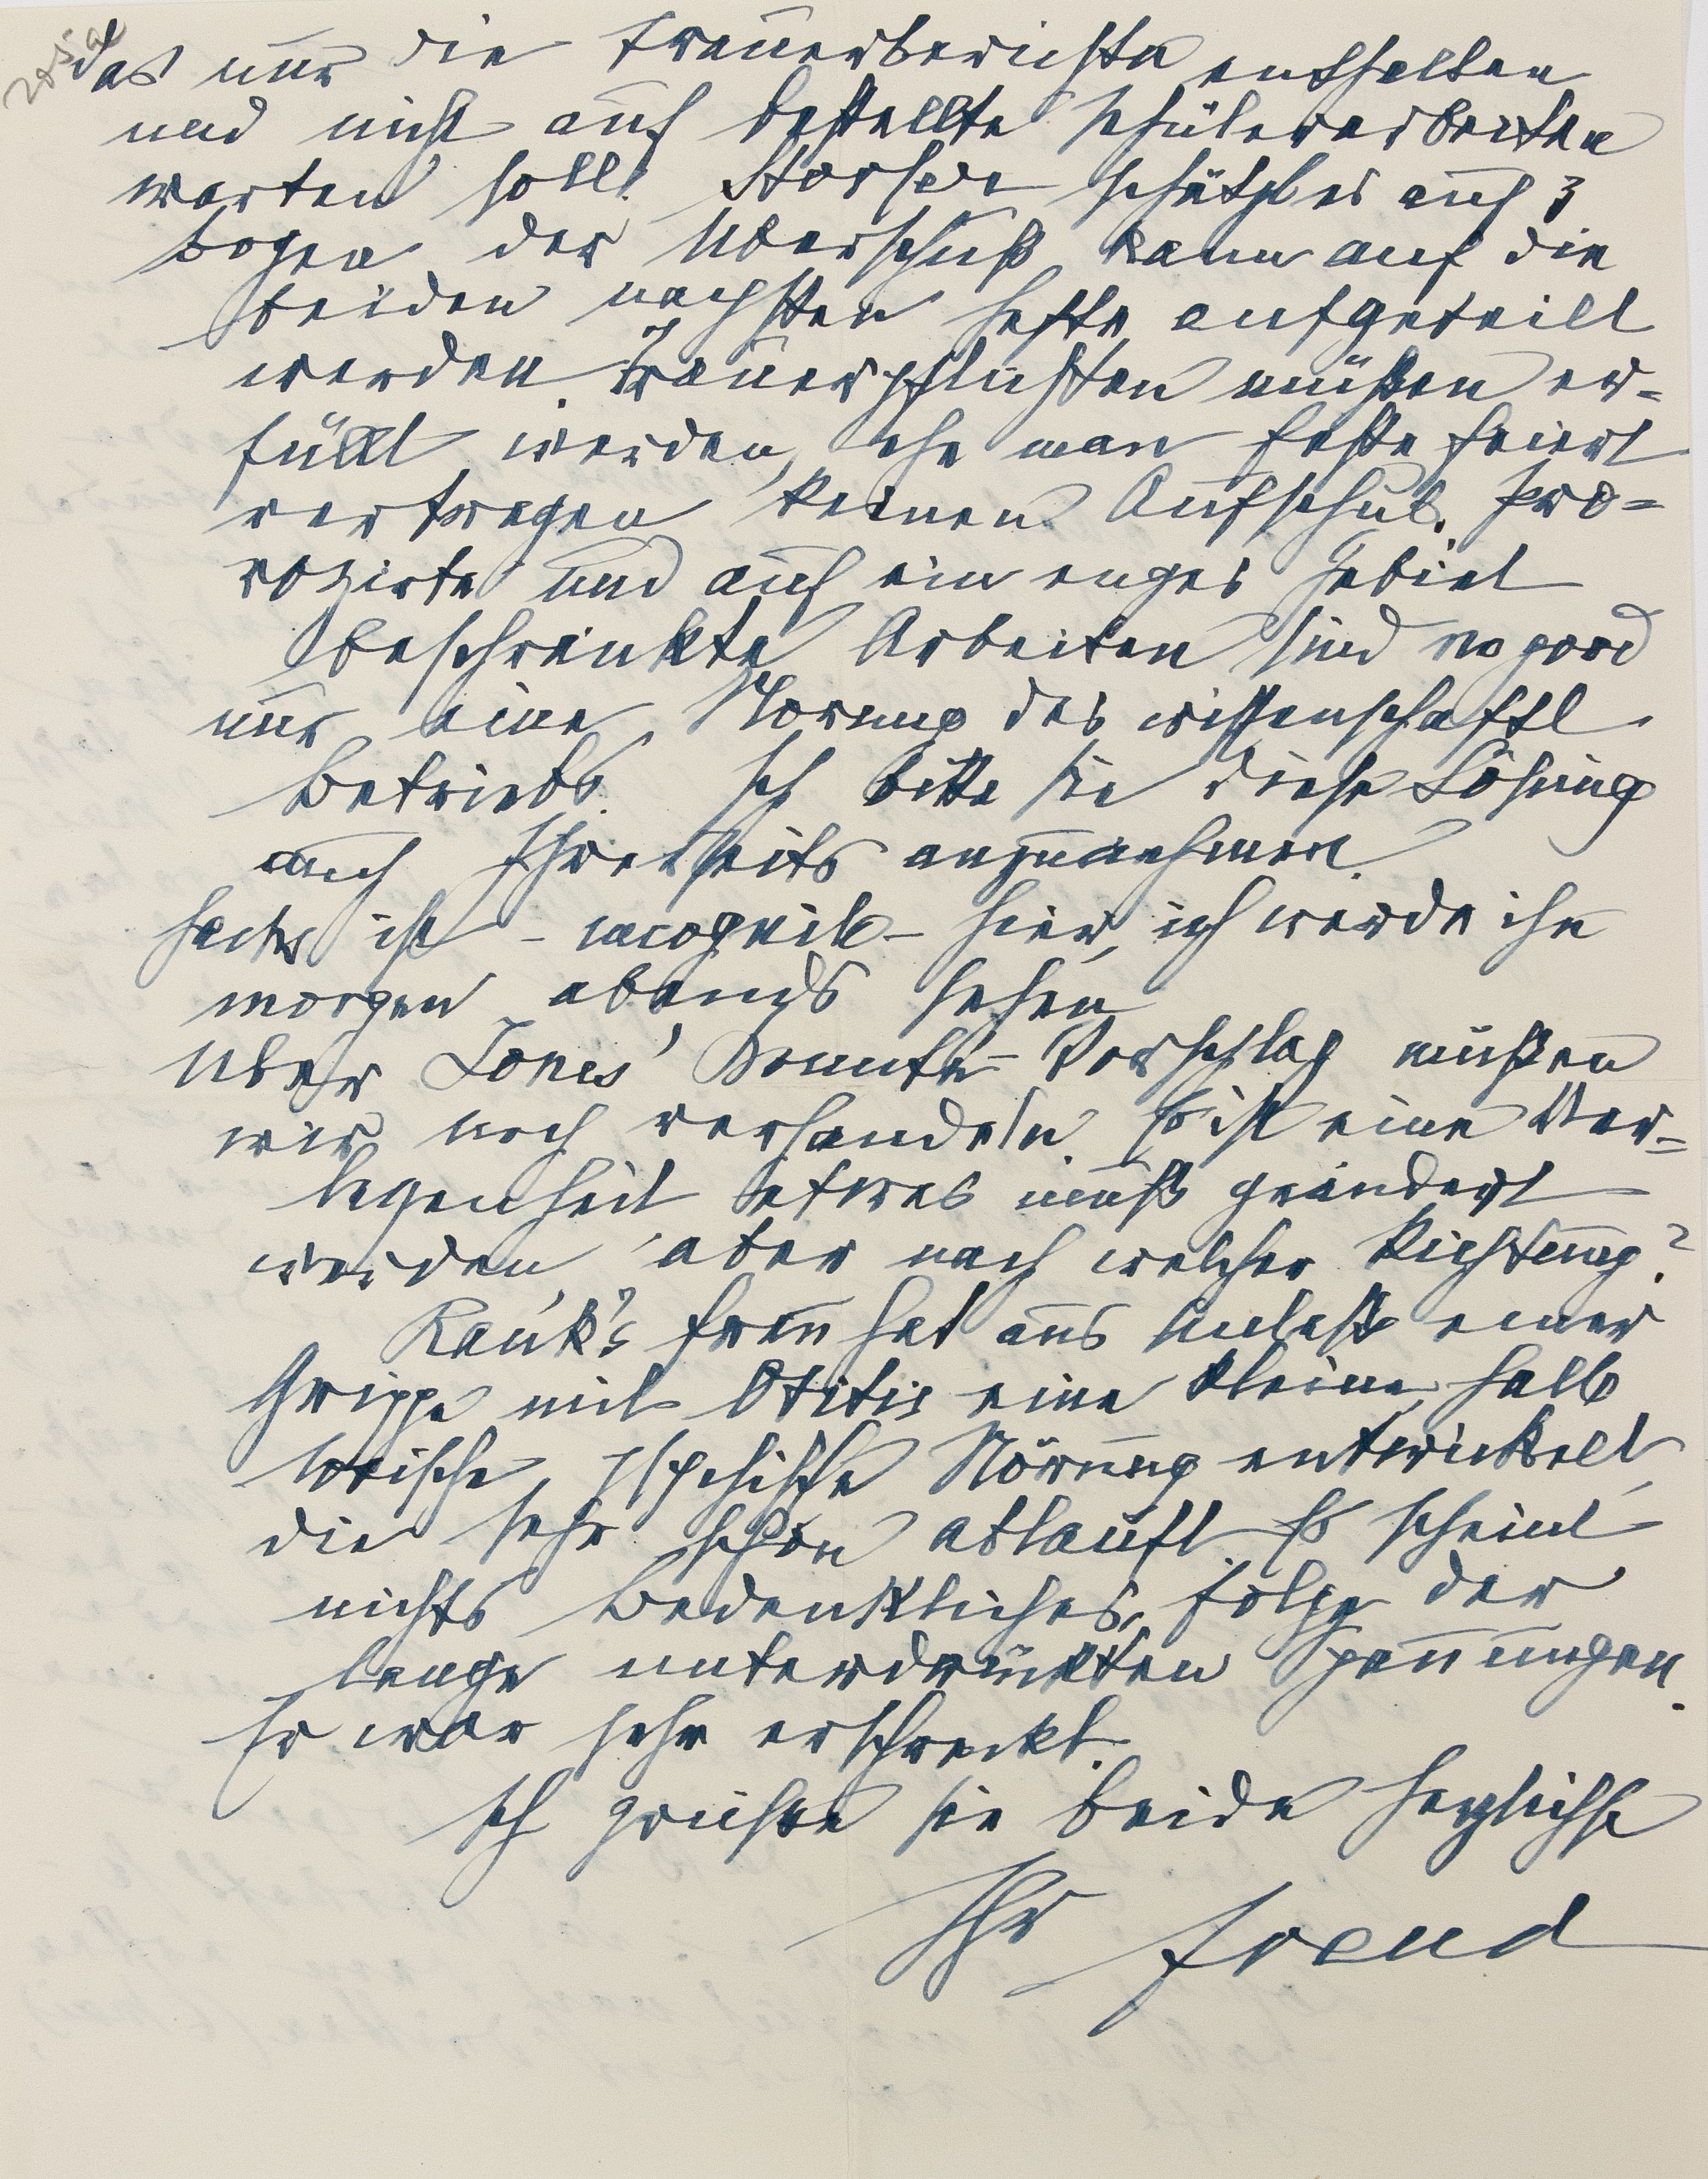 das nur die Trauerberichte enthalten
und nicht auf bestellte Schülerarbeiten
warten soll. Storfer schätzt es auf 3
Bogen der Überschuß kann auf die
beiden nächsten Hefte aufgeteilt
werden. Trauerpflichten müßen er-
füllt werden, ehe man Feste feiert
vertragen keinen Aufschub. Pro-
vozirte und auf ein enges Gebiet
beschränkte Arbeiten sind no good
nur eine Störung des wissenschaftl
Betriebs. Ich bitte Sie diese Lösung
auch Ihrerseits anzunehmen.
Sachs ist – incognito – hier, ich werde ihn
morgen abends sehen
Über Jones' Komité-Vorschlag müßen
wir noch verhandeln. Es ist eine Ver-
legenheit etwas muß geändert
werden aber nach welcher Richtung?
Rank's Frau hat aus Anlaß einer
Grippe mit Otitis eine kleine halb
toxische, psychische Störung entwickelt
die sehr schön ablauft. Es scheint
nichts Bedenkliches, Folge der
lange unterdrückten Spannungen.
Er war sehr erschreckt.
Ich grüße Sie beide herzlichst
Ihr Freud